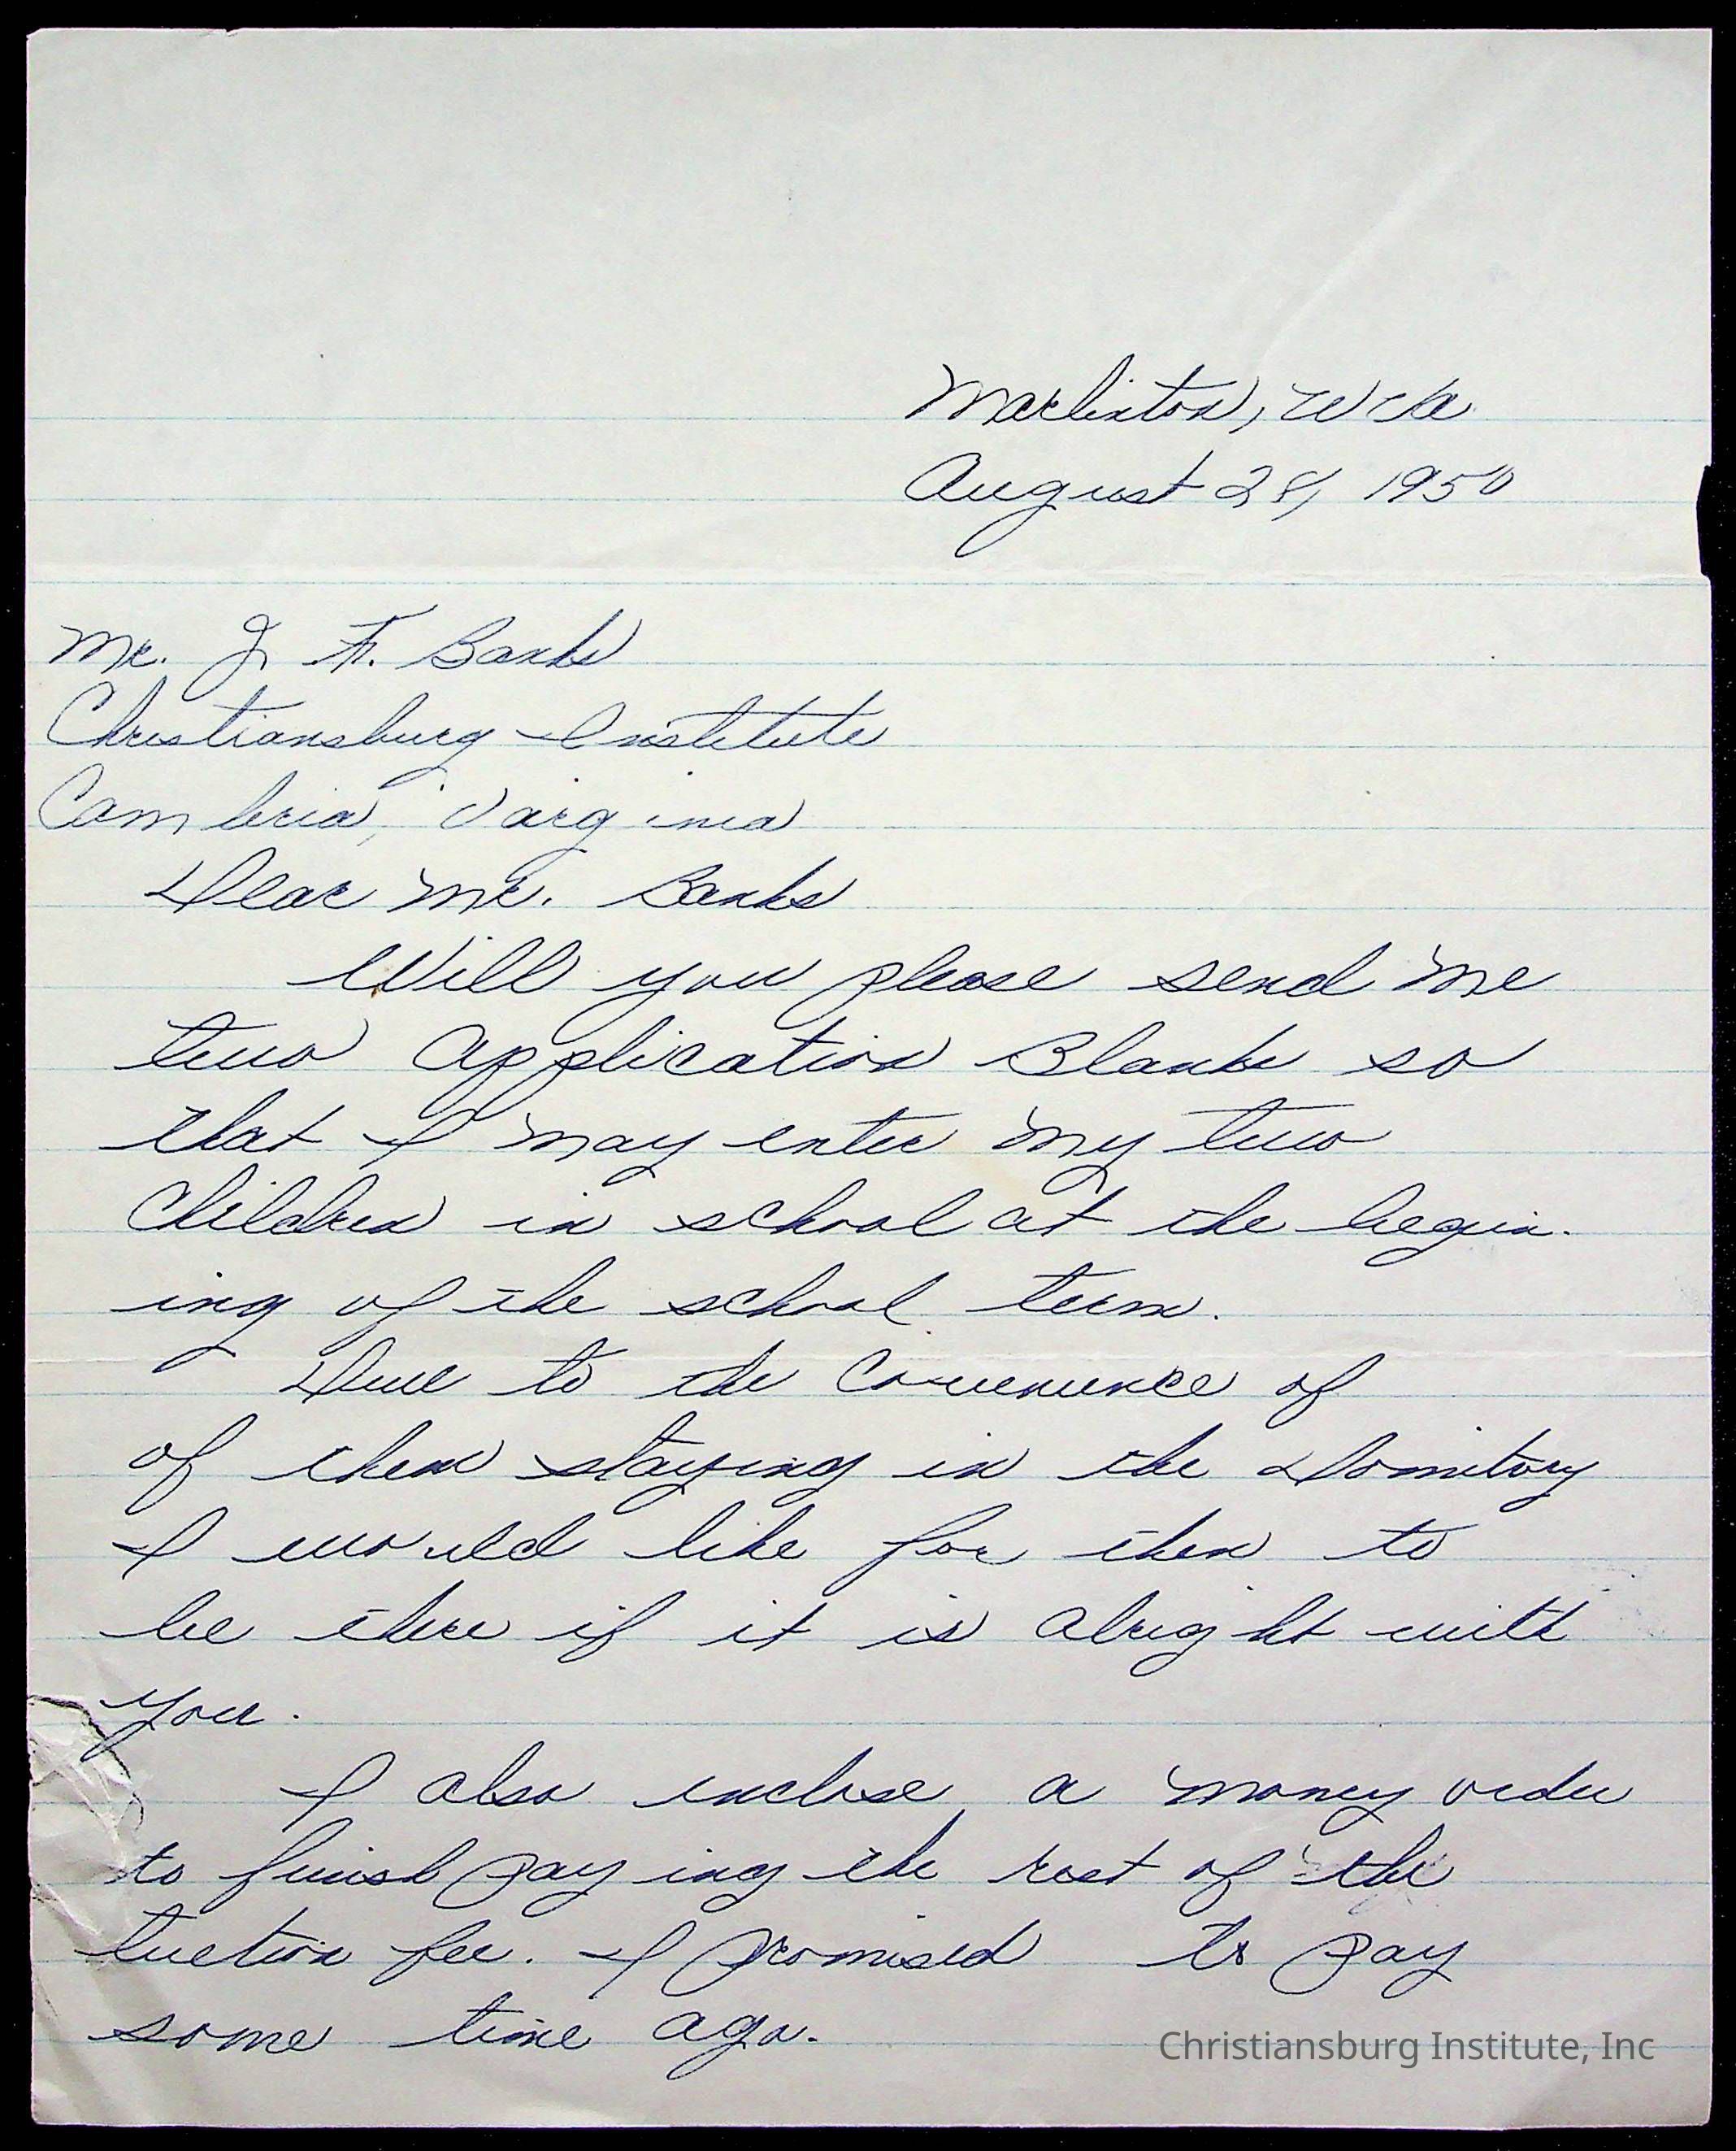 Marlinton, W Va
August 28, 1950
Mr. J F. Banks
Christiansburg Institute
Cambria, Virginia
Dear Mr. Banks
Will you please send me
two application Blanks so
that I may enter my two
Children in school at the begin-
ing of the school term.
Due to the Convenience of
of them staying in the Domitory
I would like for them to
be there if it is alright with
you.
I also inclose a money order
to finish paying the rest of the
tuction fee. I promised to pay
some time ago.
Christiansburg Institute, Inc